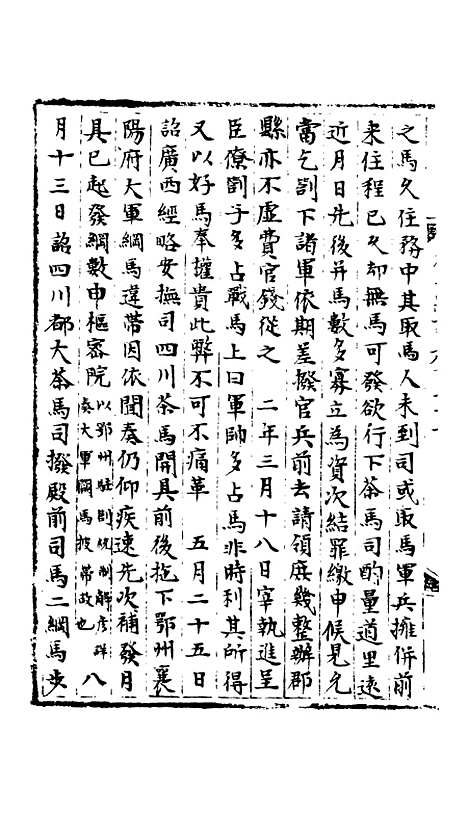 之馬久住務中其取馬人未到司或取馬軍兵擁併前
来住程已久却無馬可發欲行下茶馬司酌量道里遠
近月日先後并馬數多寡立為資次結罪繳申候見允
當乞劄下諸軍依期差撥官兵前去請領庶幾整辦郡
縣亦不虛費官錢從之　二年三月十八日宰執進呈
臣僚劄子多占戰馬上曰軍帥多占馬非時利其所得
又以好馬奉權貴此弊不可不痛革　五月二十五日
詔廣西經略安撫司四川茶馬開具前後拖下鄂州襄
陽府大軍綱馬違滯因依聞奏仍仰疾速先次補發月
具已起發綱數申樞密院以鄂州駐劄統制解彥詳奏大軍綱馬拖滯故也　八
月十三日詔四川都大茶馬司撥殿前司馬二綱馬步